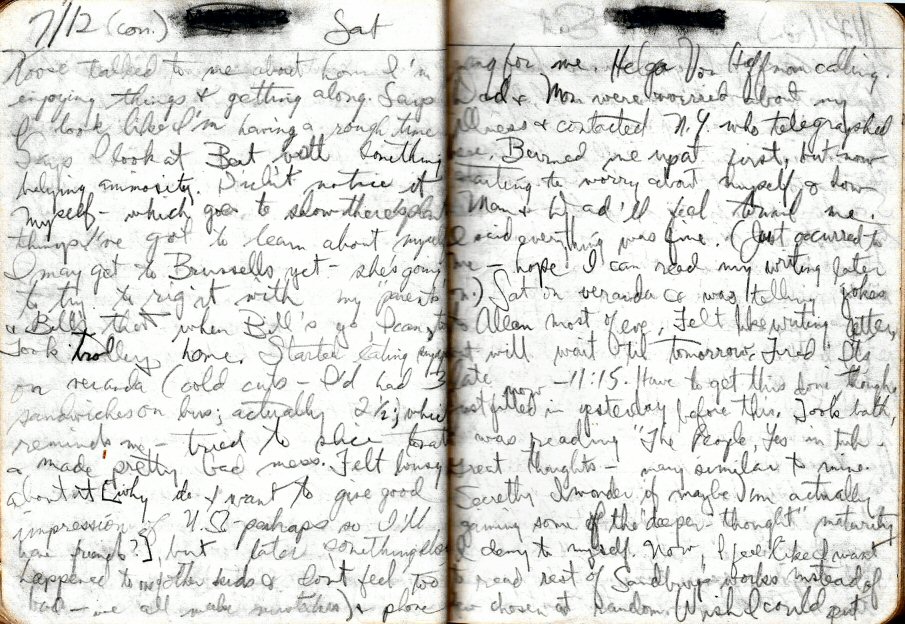 7/12 (con.) Sat
Roose talked to me about how I'm
enjoying things & getting along. Says
I look like I'm having a rough time
Says I look at Bert with something
helping animosity. Didn't notice it
myself - which goes to show there's plenty
things I've got to learn about myself
I may get to Brussells yet - she's going
to try to rig it with my "parents
& Bill's that when Bill's go I can, too
Took trolley home. Started eating
on veranda (cold cuts - I'd had 3
sandwiches on bus; actually 2 1/2; which
reminds me - tried to slice
& made pretty bad mess. Felt lousy
about it [why do I want to give good
impression of U.S. - perhaps so I'll
have friends?], but later something else
happened to other kids & don't feel too
bad - we all make mistakes) & phone
rang for me. Helga Von Hoffman calling.
Dad & Mom were worried about my
illness & contacted N.Y. who telegraphed
here. Burned me up at first, but now
starting to worry about myself & how
Mom & Dad'll feel toward me.
I said everything was fine. (Just occurred to
me - hope I can read my writing later
on.) Sat on veranda & was telling jokes
to Allan most of eve. Felt like writing letter,
but will wait 'til tomorrow. Tired. It's
late now - 11:15. Have to get this done though,
just filled in yesterday before this. Took bath,
& was reading "The People, Yes" in tub.
Great thoughts - many similar to mine.
Secretly I wonder if maybe I'm actually
gaining some of the "deeper-thought" maturity
I deny to myself. Now, I feel like I want
to read rest of Sandburg's works instead of
few chosen at random. Wish I could put